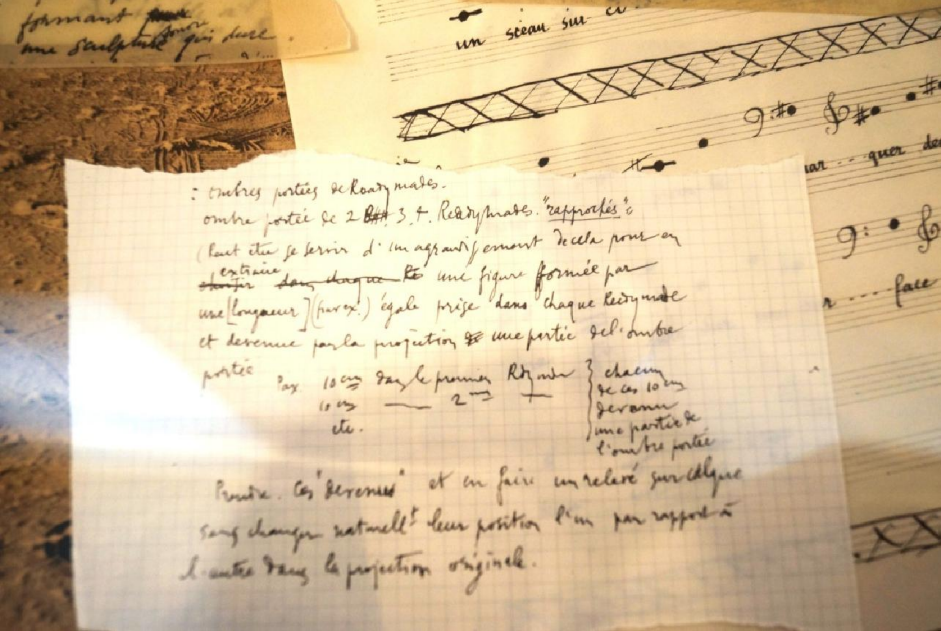 formant
une sculpture qui dure.
un sceau sur ci
quer des
face
: ombres portées de Readymades.
ombre portée de 2 3. 4. Readymades. "rapprochés"
(Peut être se servir d'un agrandissement de cela pour en
extraire
dans chaque Re une figure formée par
une [longueur] (par ex.) égale prise dans chaque Readymade
et devenue par la projection une partie de l'ombre
portée
Par ex 10 cm dans le premier Rdymade } chacun
10 cm —— 2me —— de ces 10 cm
etc. devenu
une partie de
l'ombre portée
Prendre. Ces "devenus" et en faire un relevé sur calque
sans changer naturellt leur position l'un par rapport à
l'autre dans la projection originale.